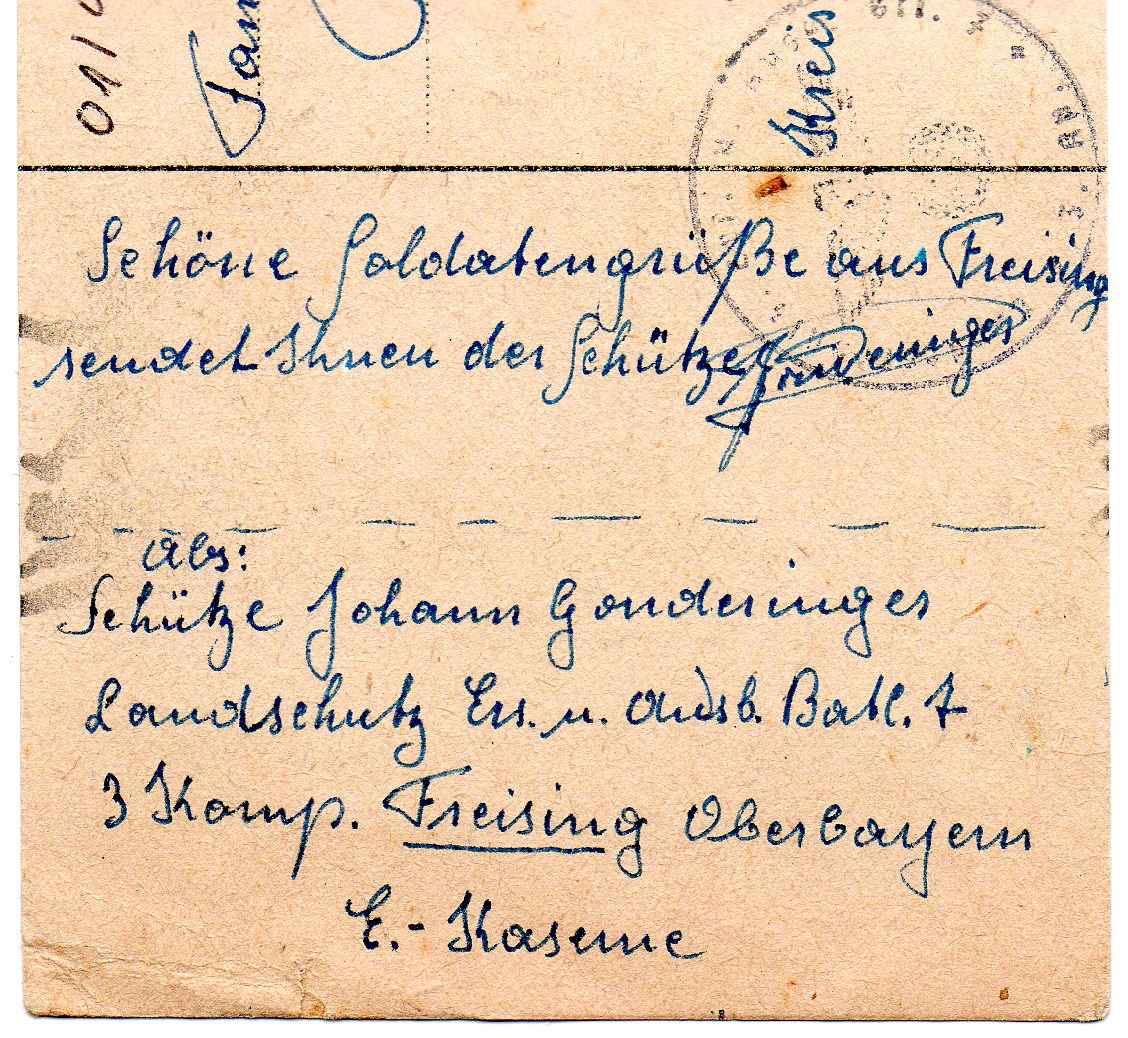 01/
Fam
Kreis
Schöne Soldatengrüße aus Freising
sendet Ihnen der Schütze Gonderinger
Abs:
Schütze Johann Gonderinger
Landschutz Ers. u. Ausb. Batl. 7
3 Komp. Freising Oberbayern
E.- Kaserne